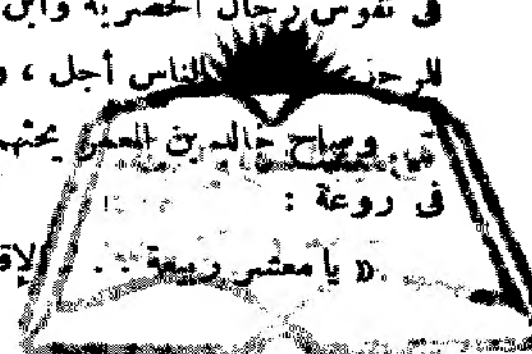 فى نفوس رجال الحضرية وابن
للرحز الناس أجل ، و
وصاح خالد بن المعمر يحثهم
فى روعة :
« يا معشر ربيعة . .